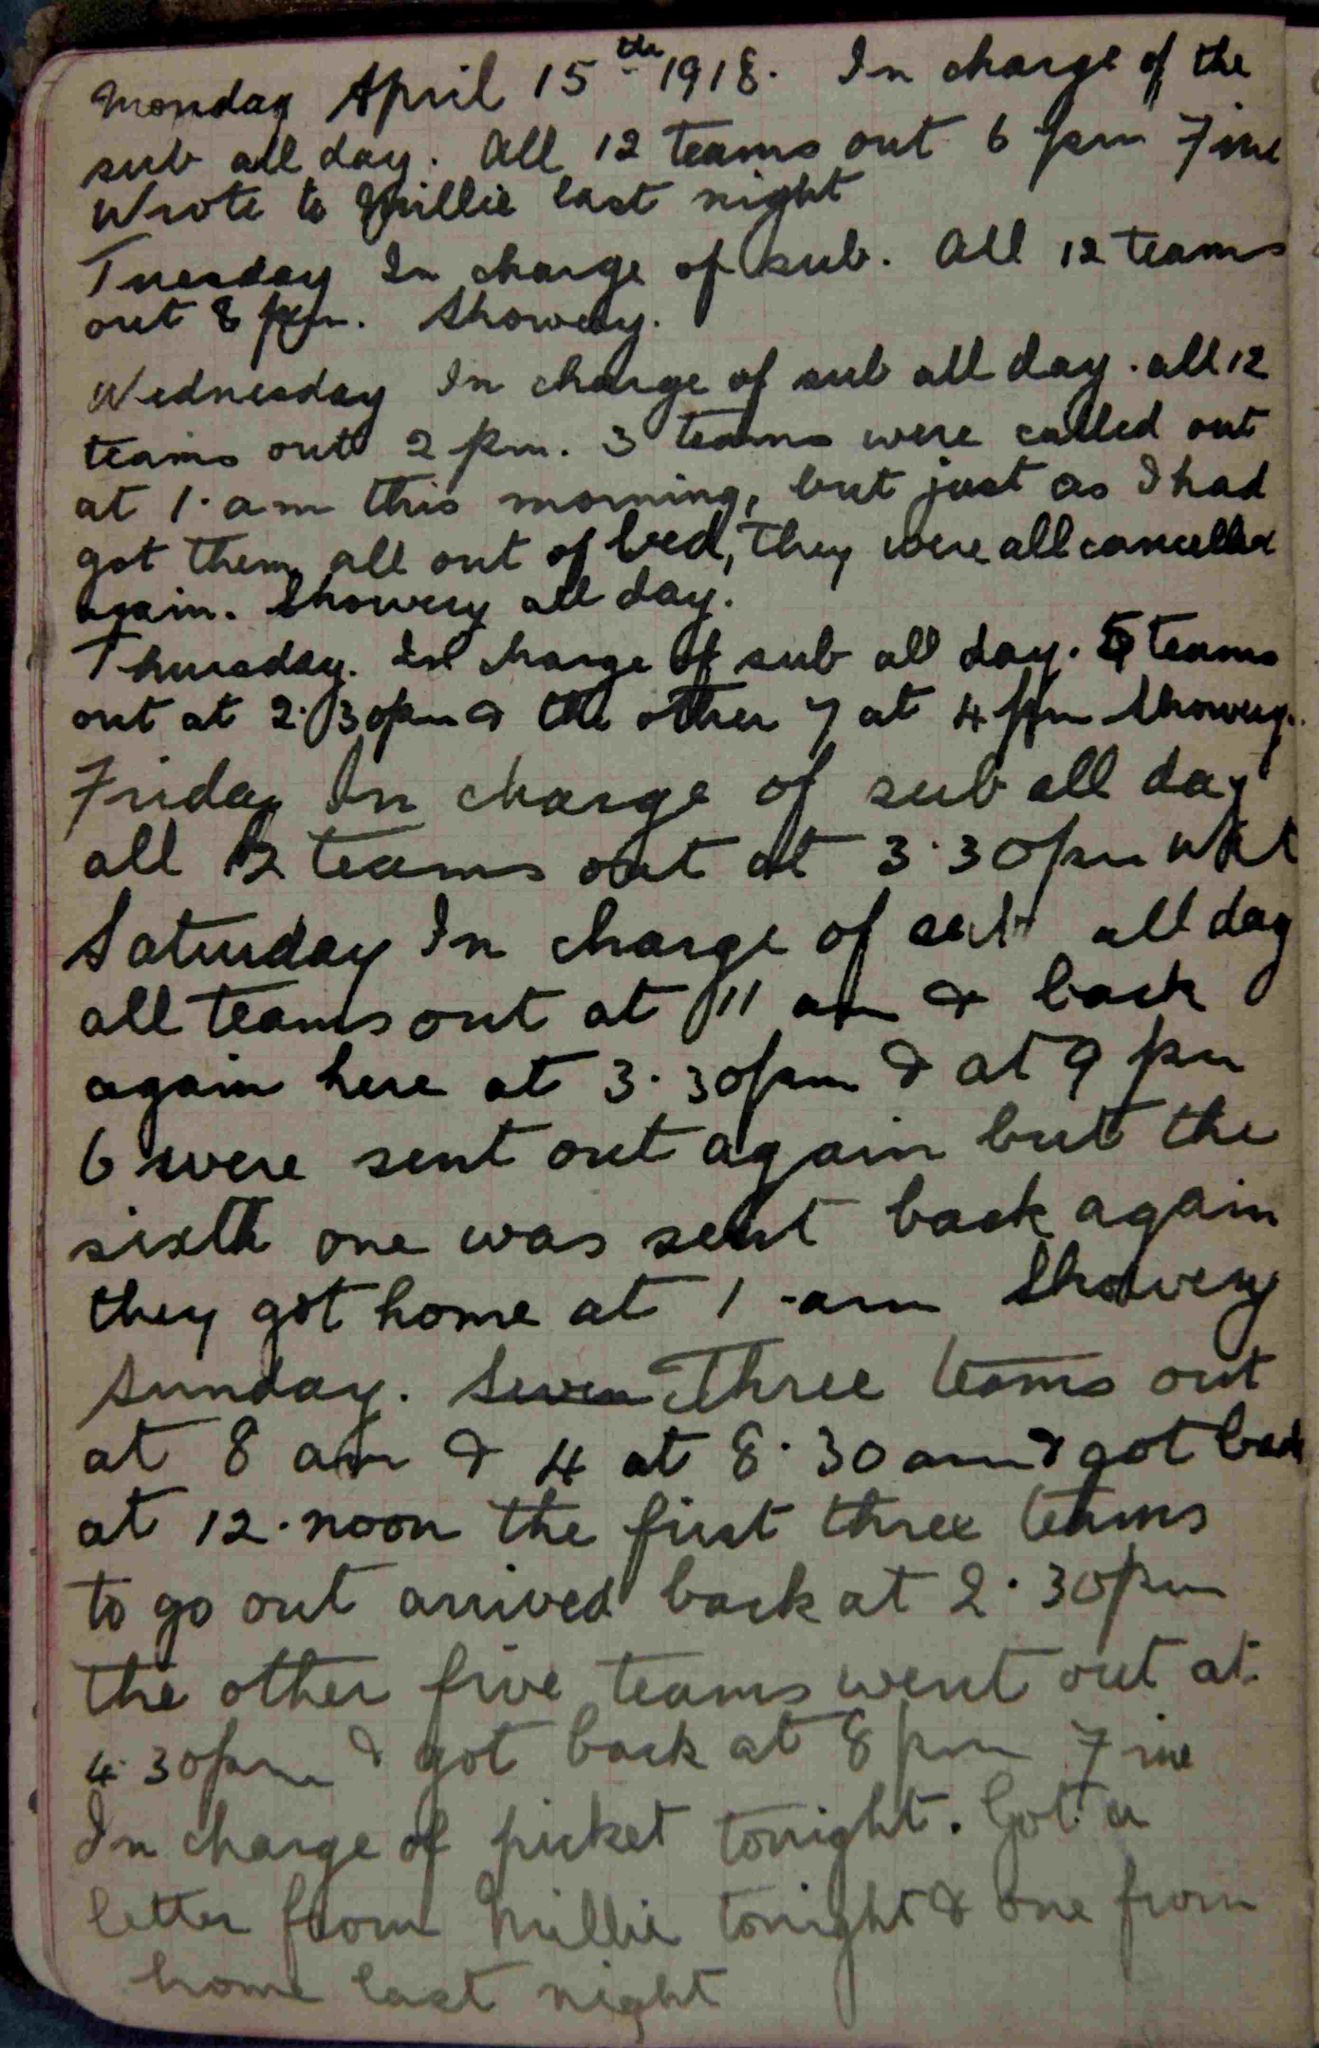 Monday April 15th 1918. In charge of the
sub all day. All 12 teams out 6 pm Fine
Wrote to Millie last night
Tuesday In charge of sub. All 12 teams
out 8 pm. Showery.
Wednesday In charge of sub all day. all 12
teams out 2 pm. 3 teams were called out
at 1.am this morning, but just as I had
got them all out of bed, they were all cancelled
again. Showery all day.
Thursday. In charge of sub all day. 5 teams
out at 2.30pm & the other 7 at 4 pm Showery.
Friday In charge of sub all day
all 12 teams out at 3.30pm Wet
Saturday In charge of sub all day
all teams out at 11 am & back
again here at 3.30pm & at 9 pm
6 were sent out again but the
sixth one was sent back again
they got home at 1.am Showery
Sunday. Seven Three teams out
at 8 am & 4 at 8.30am & got back
at 12.noon the first three teams
to go out arrived back at 2.30pm
the other five teams went out at
4.30pm & got back at 8 pm Fine
In charge of picket tonight. Got a
letter from Millie tonight & one from
home last night